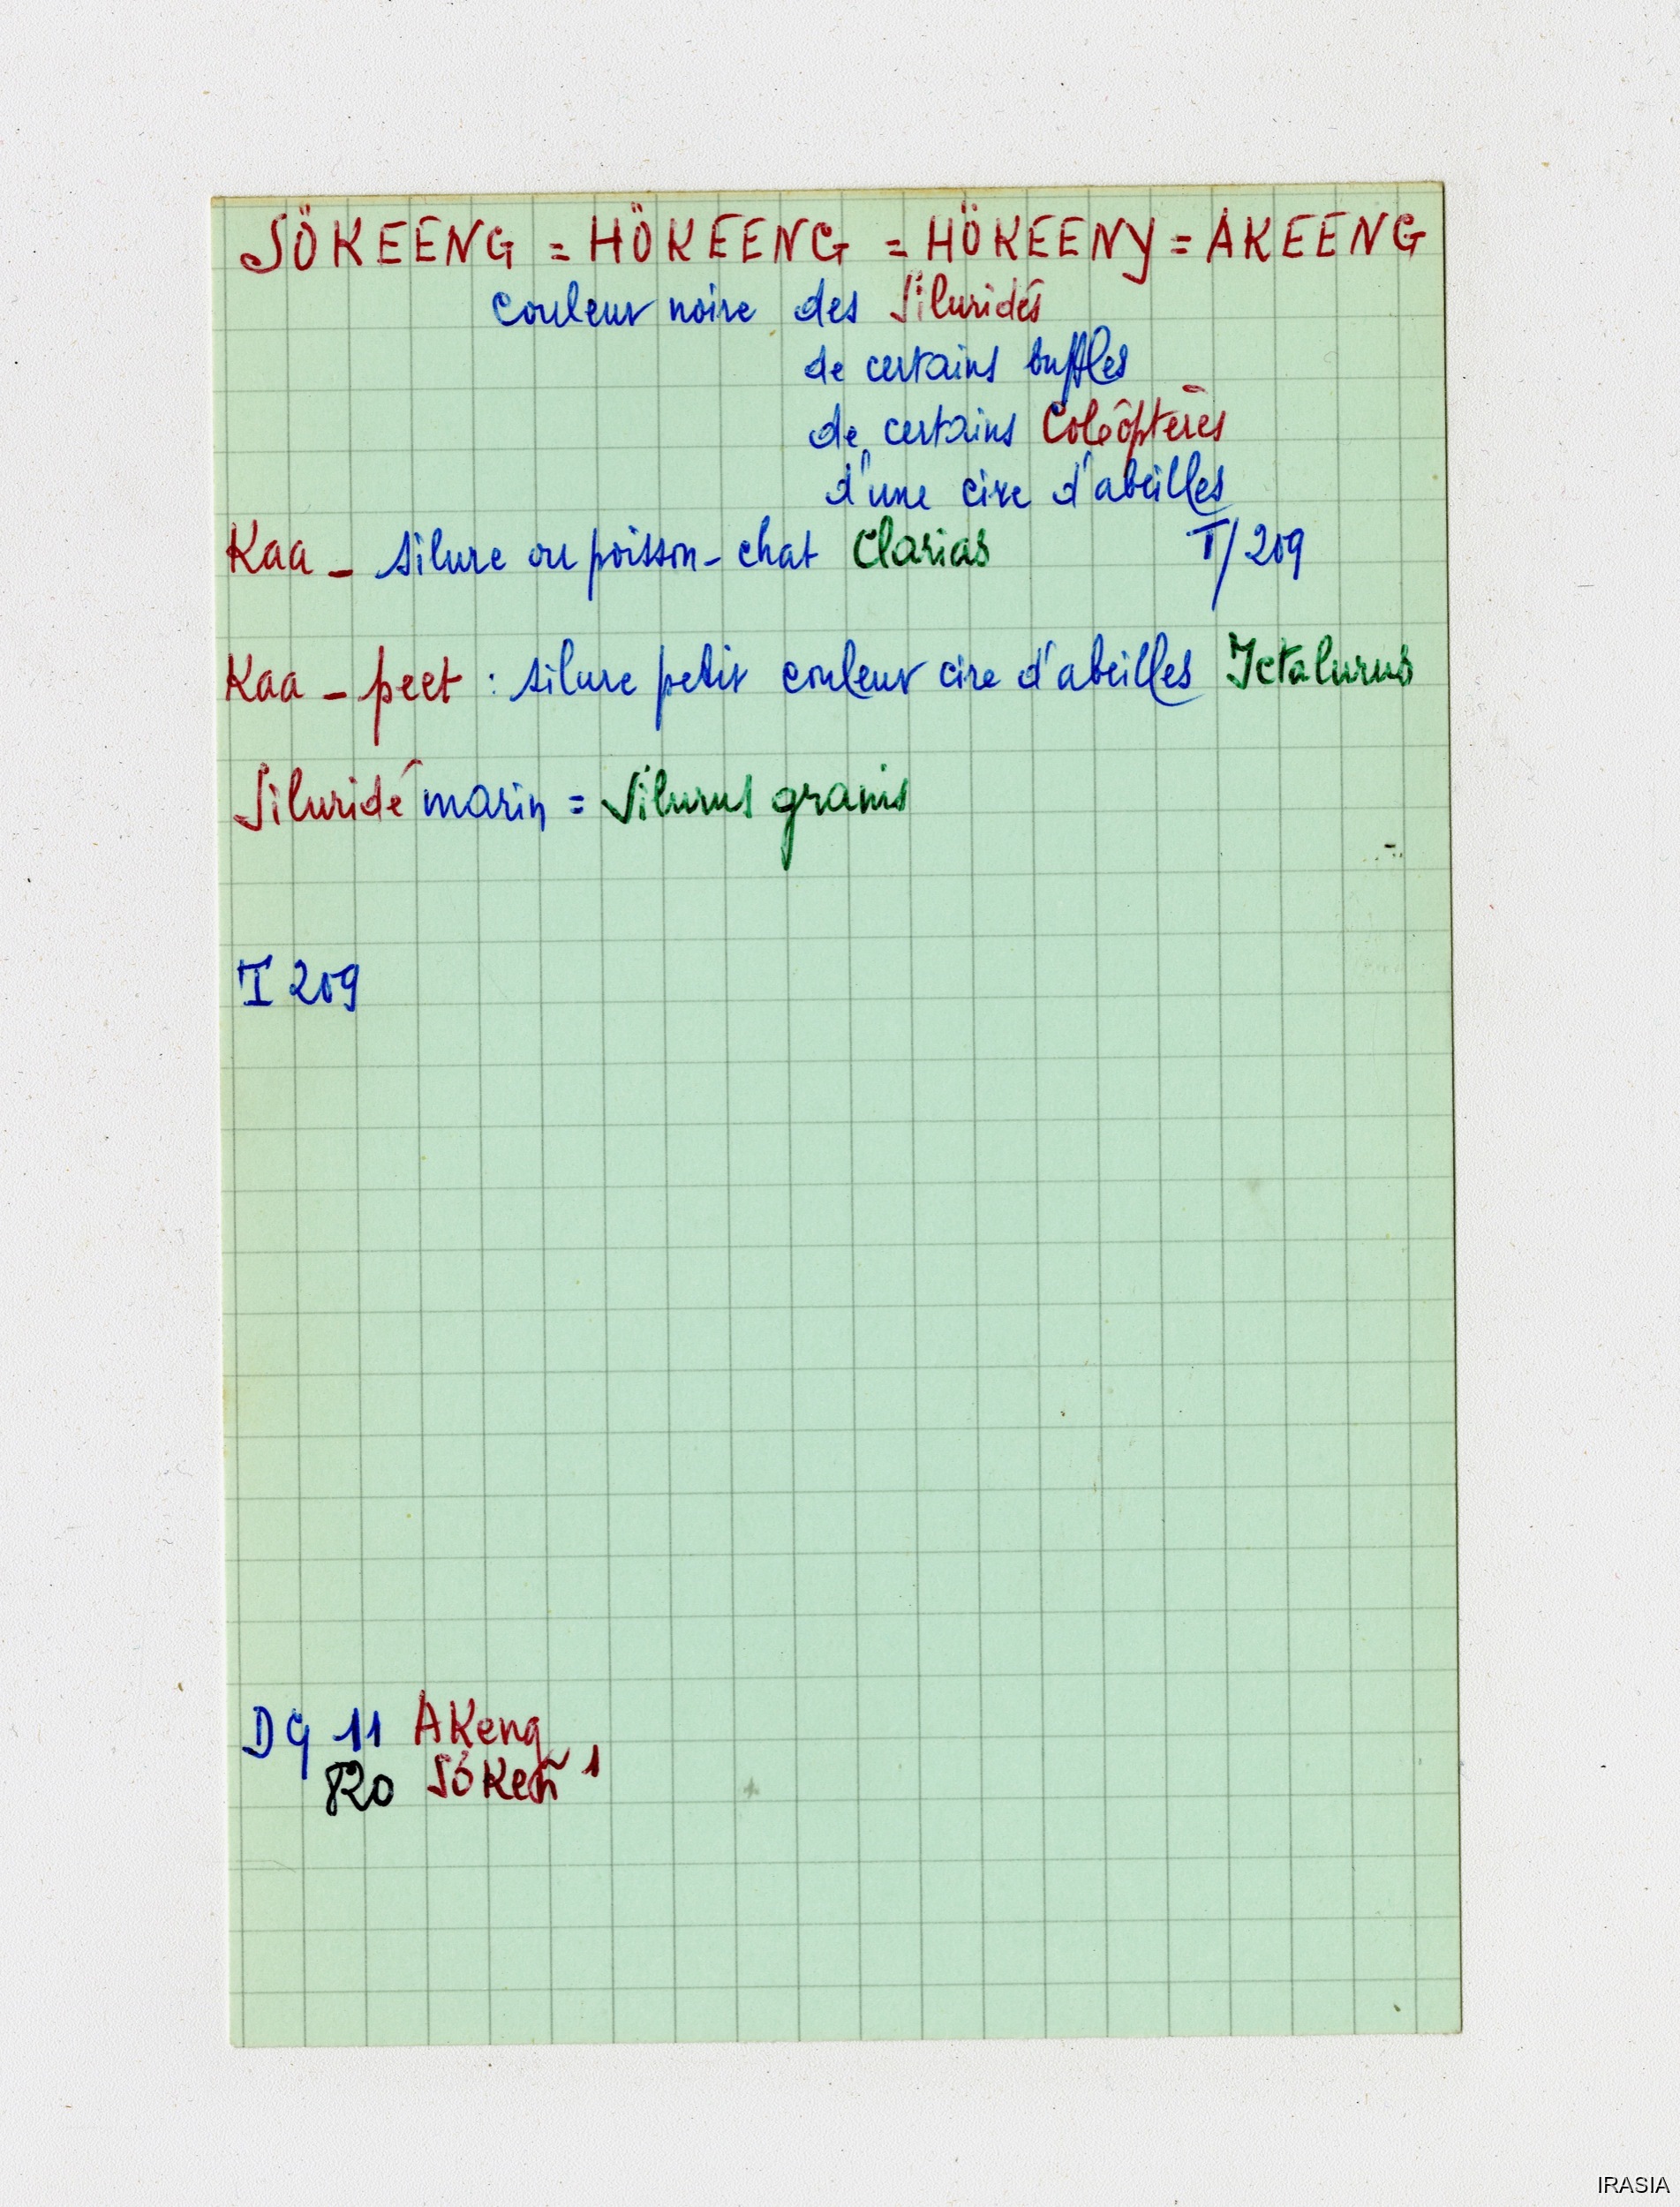 SÖKEENG = HÖKEENG = HÖKEENY = AKEENG
couleur noire des Siluridés
de certains buffles
de certains Coléoptères
d'une cire d'abeilles
Kaa - silure ou poisson-chat Clarias T/209
Kaa - peet : silure petit couleur cire d'abeilles Ictalurus
Siluridé marin = Silurus
T 209
11 AKeng
820 Sökeñ 1
IRASIA